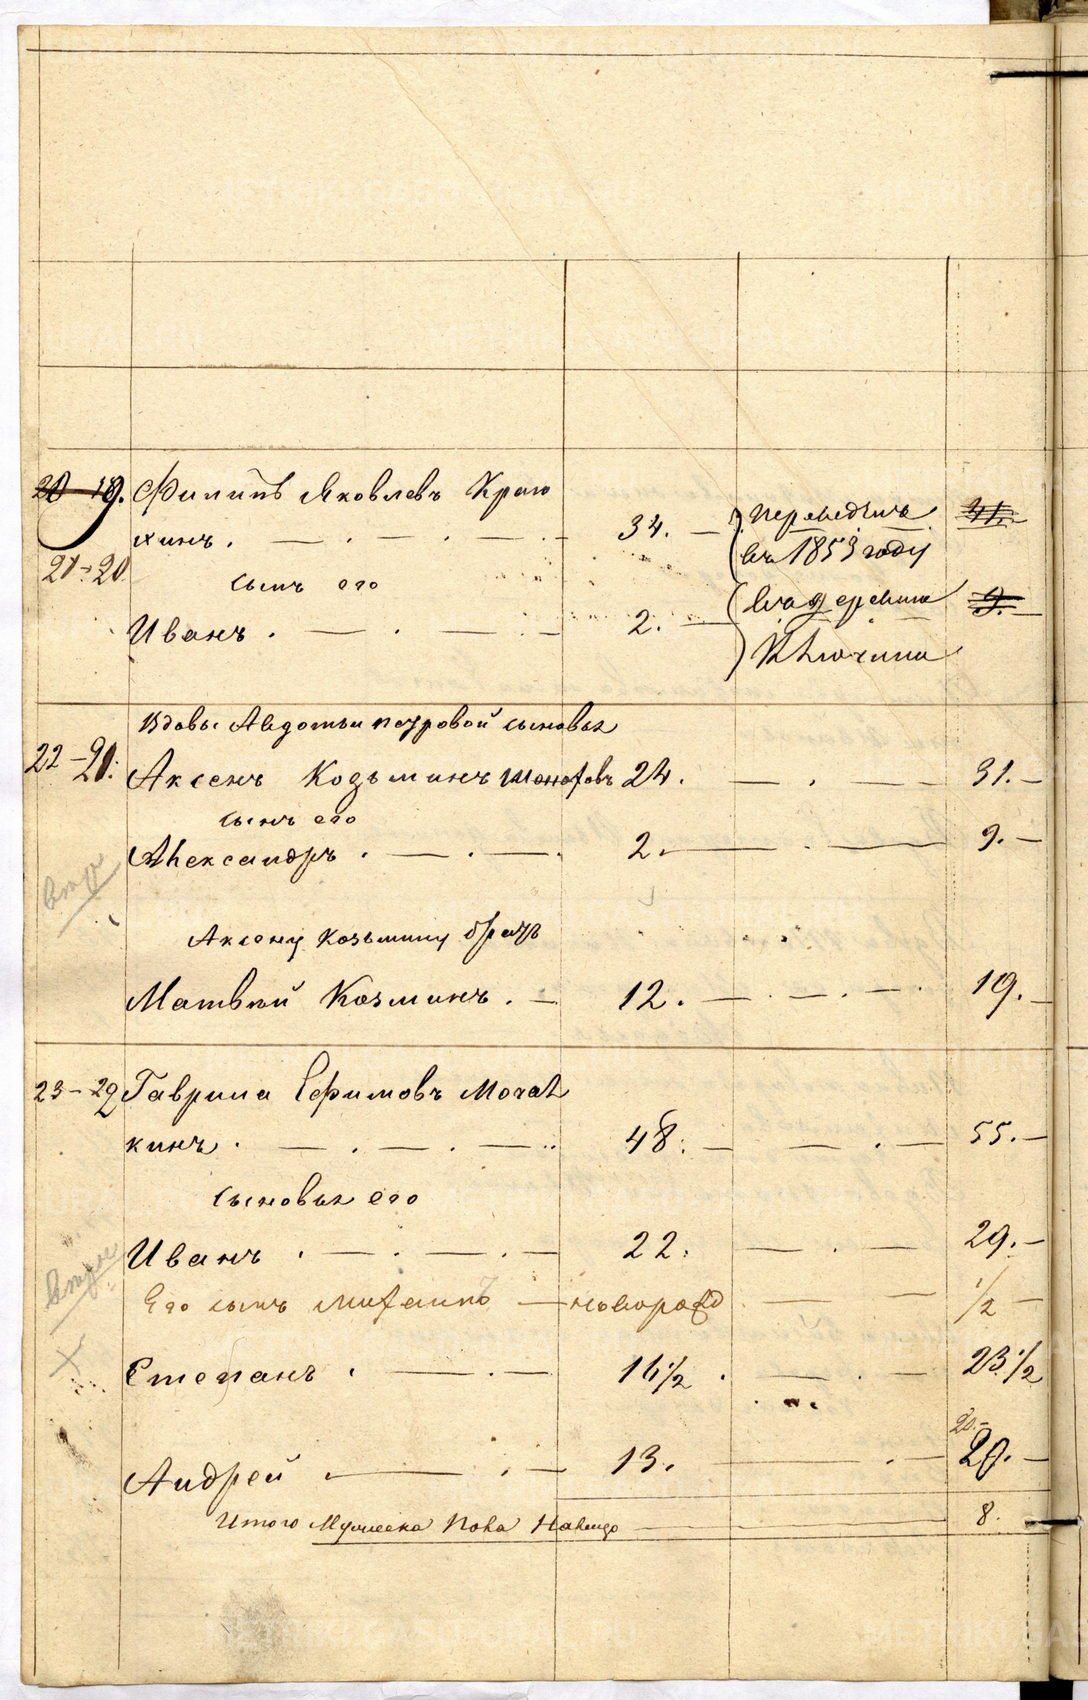 20 19. Филипъ Яковлевъ Краю
хинъ. 34. переведенъ 41.
въ 1853 году
21 - 20
сынъ его
Иванъ. 2. въ деревню 9.
Ключини
Вдовы Авдотьи Петровой сыновья
22 - 21. Аксенъ Козьминъ 24. 31.
сынъ его
Александръ. 2. 9.
Аксену Козьмину братъ
Матвѣй Козминъ. 12. 19.
23 - 22 Гаврила Ефимовъ Мочал
кинъ. 48. 55.
сыновья его
Иванъ. 22. 29.
Его сынъ Михаилъ новорожд 1/2
Степанъ. 16 1/2. 23 1/2
20.
Андрей. 13. 20.
Итого Мужеска пола налицо 8.